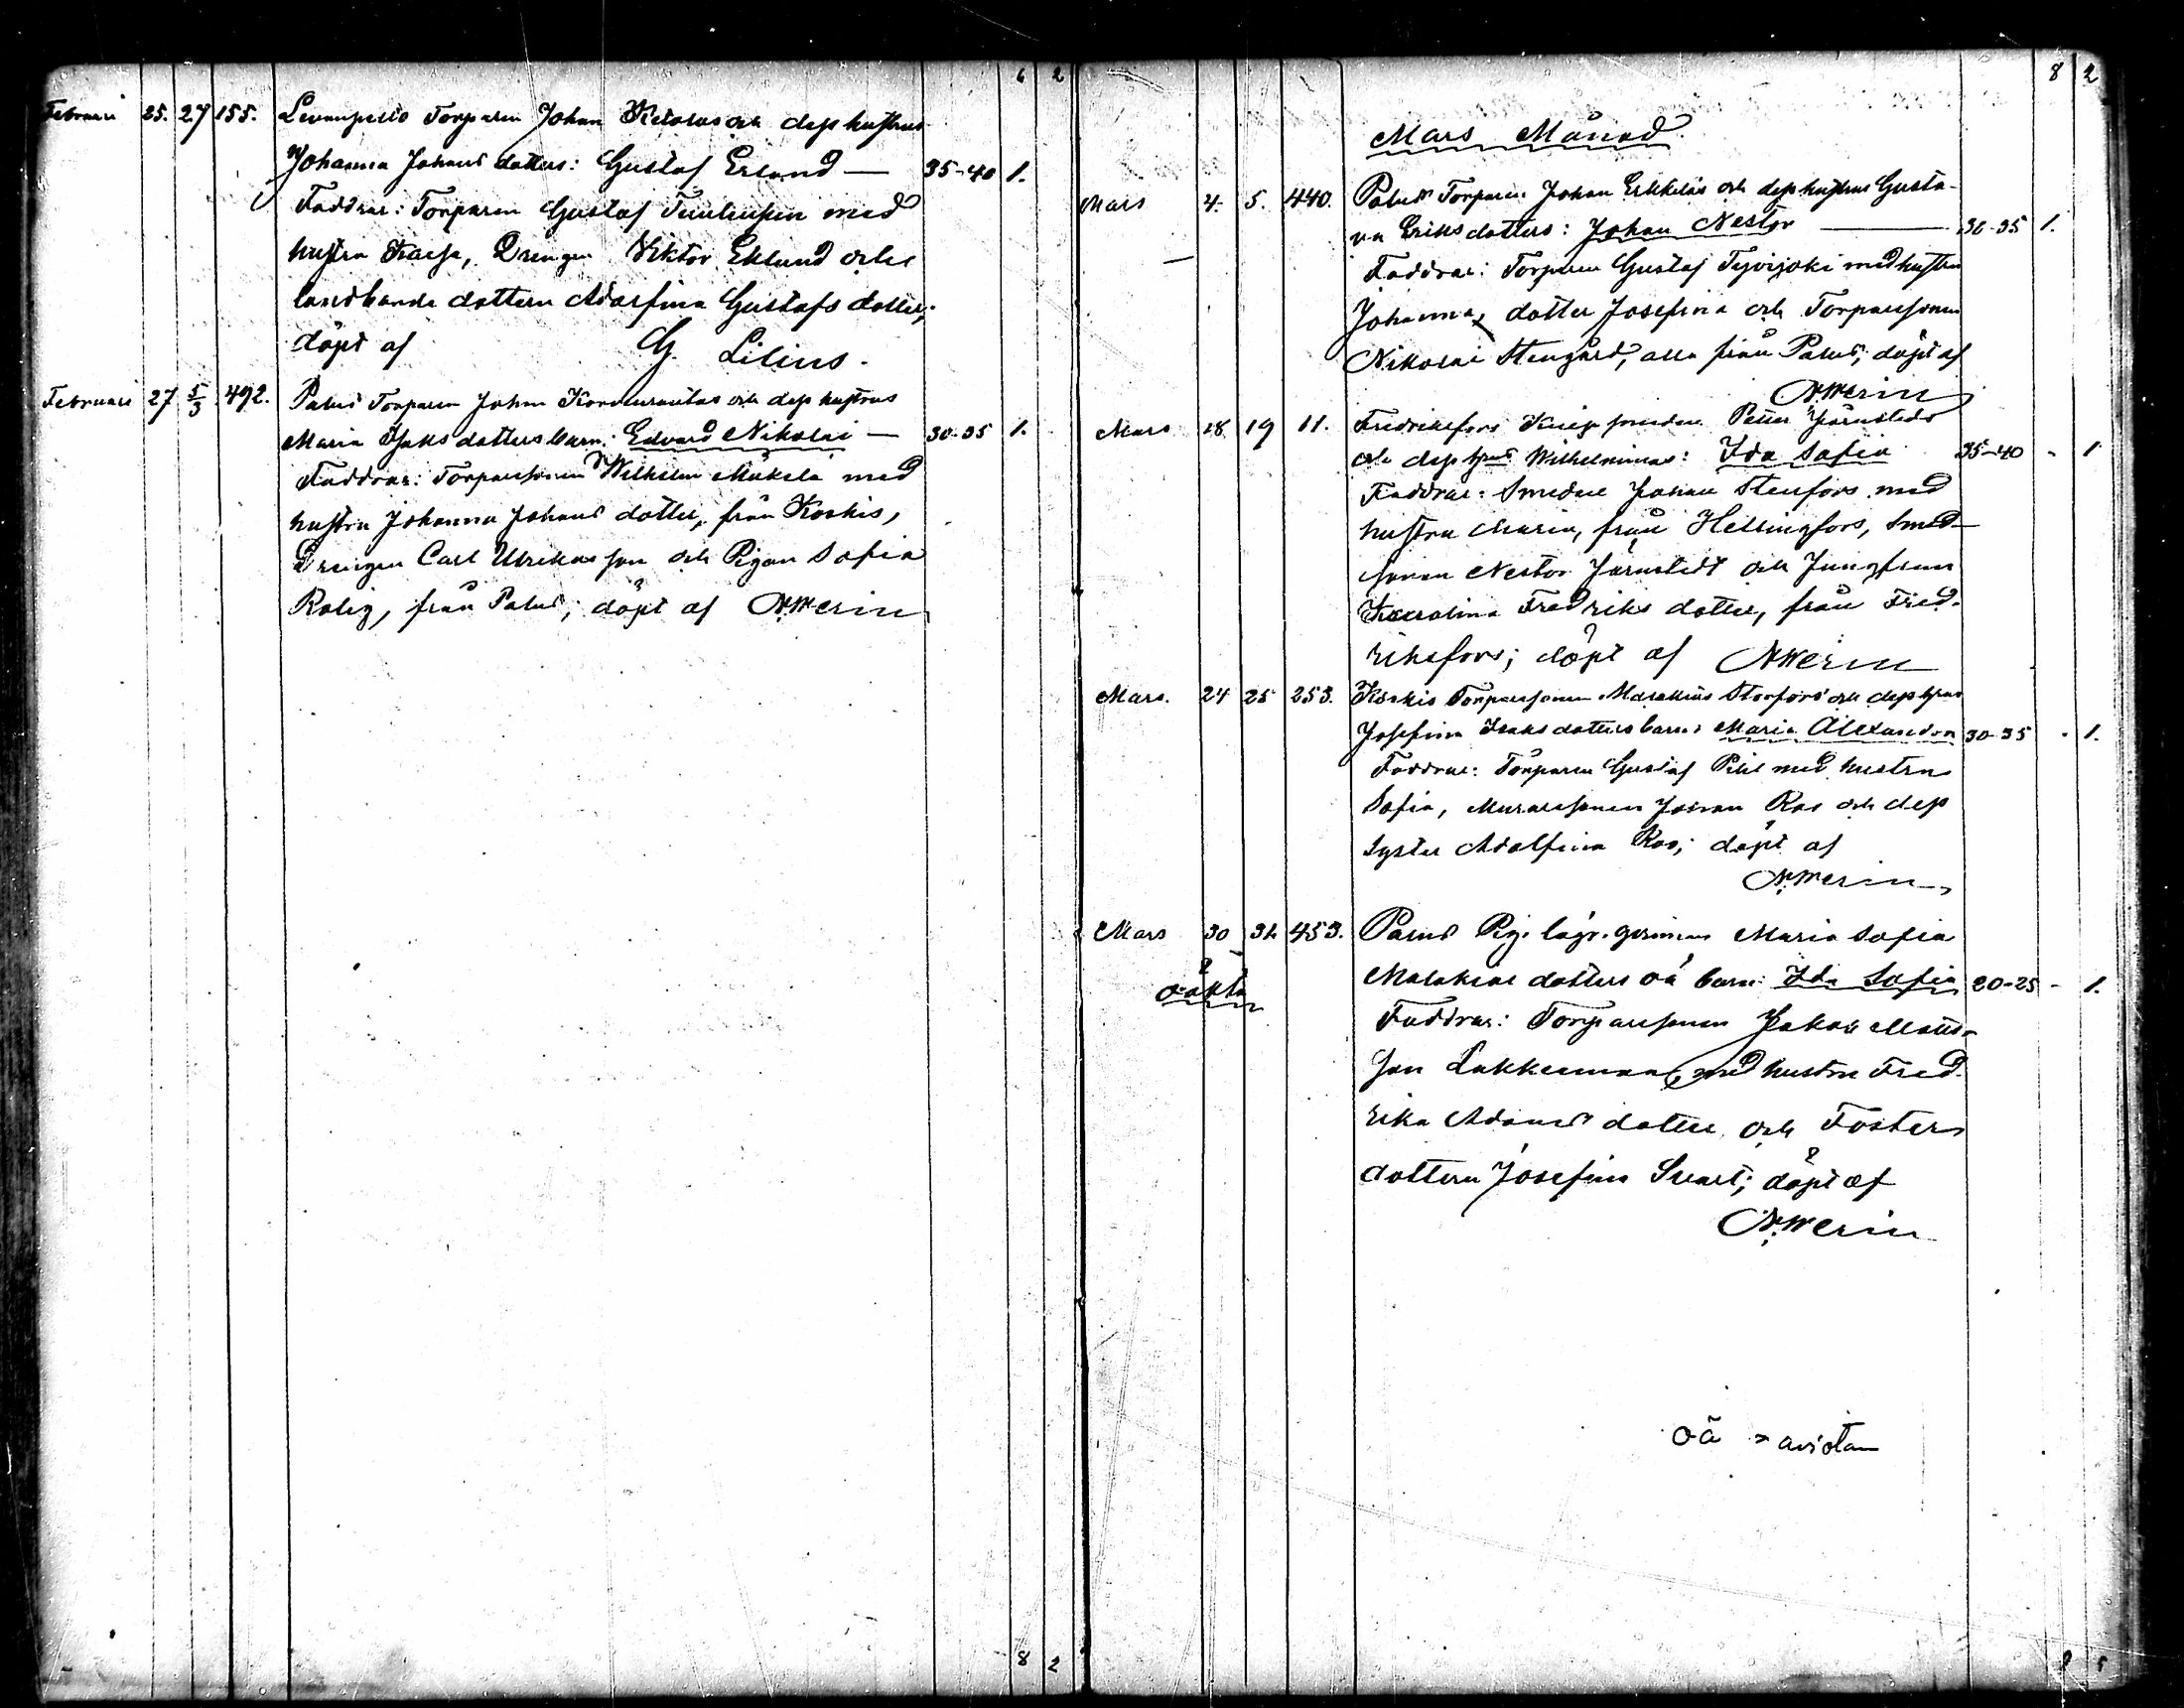 6 2
Februari 25. 27 155. Torparen Johan och dess hustrus
Johanna Johans dotters: Gustaf Erland — 35-40 1.
Faddrar: Torparen Gustaf med
hustru Kaesa, Drengen Viktor Eklund och
landbonde dottern Adolfina Gustafs dotter;
döpt af G. Lilius.
Februari 27 5/3 492. Palus Torparen Johan och dess hustrus
Maria Isaks dotters barn: Edvard Nikolai — 30-35 1.
Faddrar: Torparesonen Wilhelm Mäkelä med
hustru Johanna Johans dotter, från Koskis,
Drengen Carl Ulrikasson och Pigan Sofia
Rolig, från Palus; döpt af N. Merin
8 2
8 2
Mars Månad.
Mars 4. 5. 440. Palus Torparen Johan Erkkilas och dess hustrus Gusta-
va Eriksdotters: Johan Nestor — 30-35 1.
Faddrar: Torparen Gustaf Tyvijoki med hustru
Johanna, dotter Josefina och Torparesonen
Nikolai Stengård, alla från Palus; döpt af
N. Merin
Mars 18 19 11. Fredriksfors Knipsmeden Petter Järnstedts
och dess hrus Wilhelminas: Ida Sofia 35-40 - 1
Faddrar: Smeden Johan Stenfors med
hustru Maria, från Helsingfors, Smed-
sonen Nestor Järnstedt och Jungfrun
Karolina Fredriks dotter, från Fred-
riksfors; döpt af N Merin
Mars. 24 25 253. Koskis Torparesonen Malakias Storfors och dess hrus
Josefina Isaks dotters barn: Maria Alexandra 30-35 - 1.
Faddrar: Torparen Gustaf med hustru
Sofia, Muraresonen Johan Ros och dess
syster Adolfina Ros; döpt af
N. Merin
Mars 30 31 453. Palus Pig. lägr. qvinnan Maria Sofia
oäkta Malakias dotters oä barn: Ida Sofia 20-25 - 1.
Faddrar: Torparesonen Jakob Matts-
son Lukkunmaa, med hustru Fred-
rika Adams dotter och Foster
dottern Josefina Svart; döpt af
N. Merin
oä = aviotan